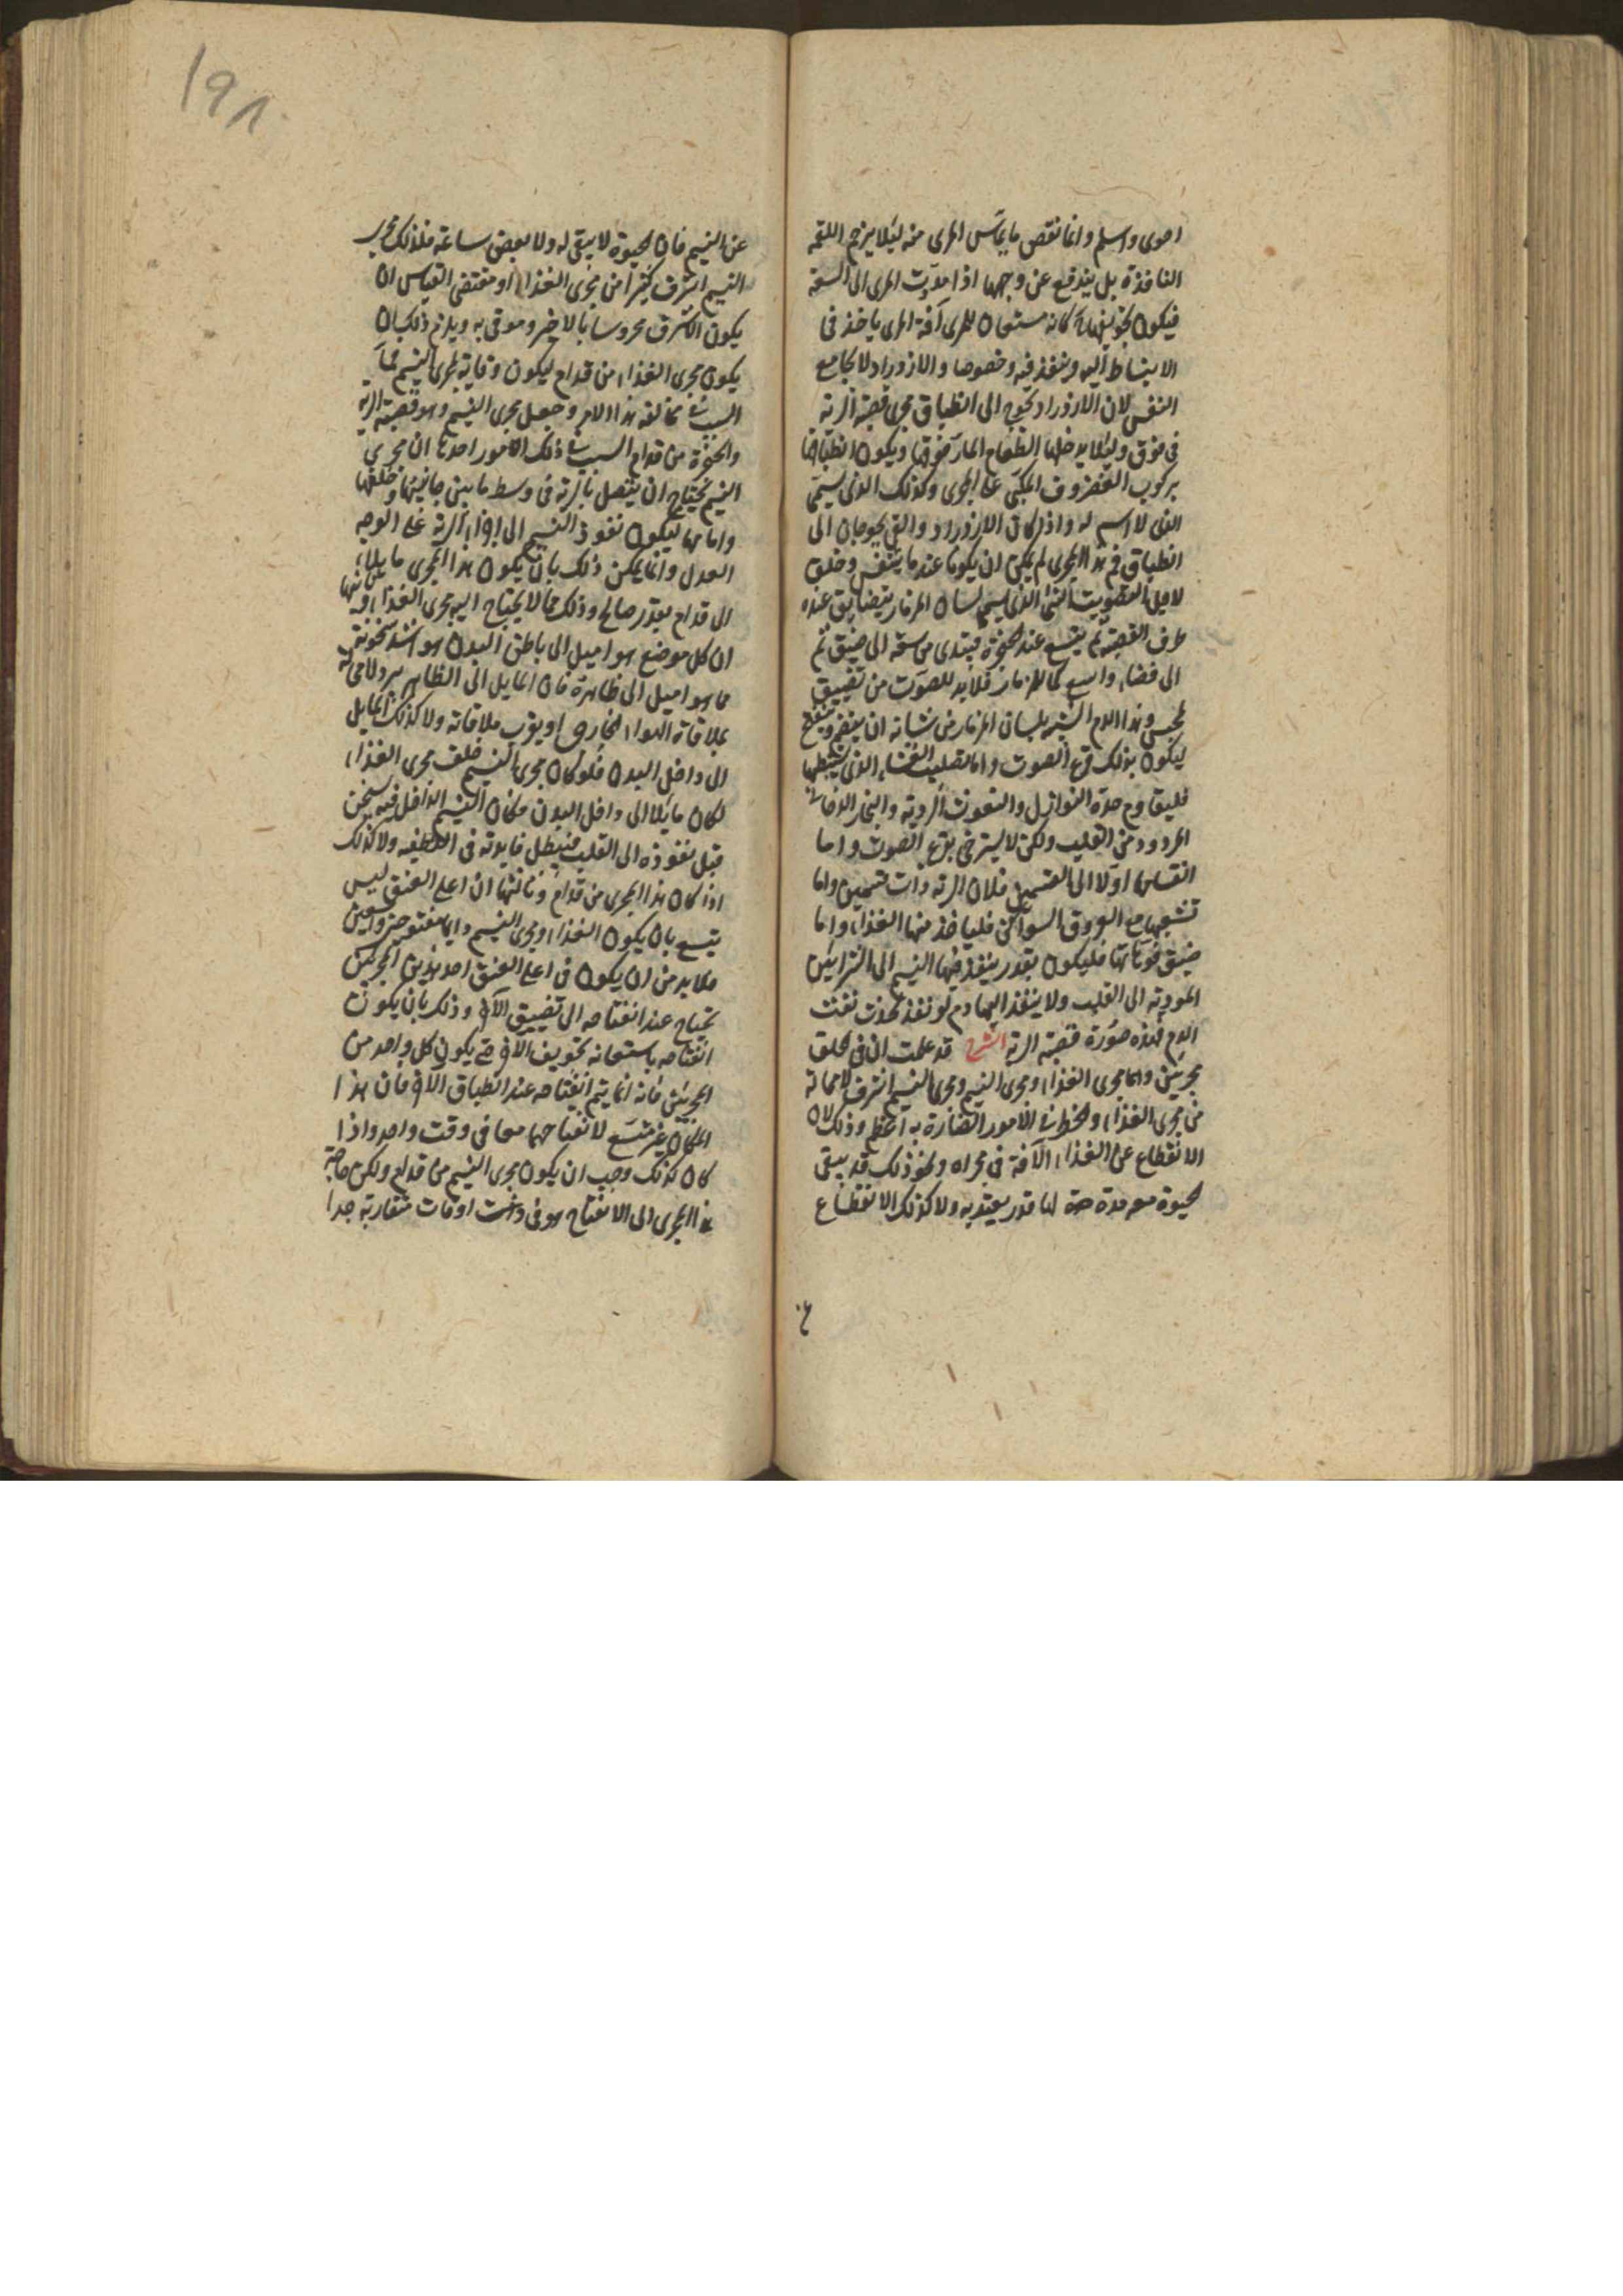 احوى واسلم وانما نقص ما يماس المرى منه ليلا يزحم اللقمة
النافذة بل يندفع عن وجهها اذا مددت المرى الى السعة
فيكون تجويفها كانه مستعان للمرى اذ المرى ياخذ فى
الانبساط اليه وينفذ فيه وخصوصا والازدراد لا يجامع
النفس لان الازدراد يحوج الى انطباق مجرى قصبة الرية
من فوق وليلا يدخلها الطعام المار فوقها ويكون انطباقها
بركوب الغضروف المكبى على المجرى وكذلك الذى يسمى
الذى لا اسم له واذا كان الازدراد والقى يحوجان الى
انطباق فم هذا المجرى لم يمكن ان يكونا عندما يتنفس وخلق
لاجل التصويت الشى الذى يسمى لسان المزمار يتضايق عنده
طرف القصبة ثم يتسع عند الحنجرة فيبتدى من سعة الى ضيق ثم
الى فضاء واسع كما للمزمار فلا بد للصوت من تضييق
المحبس وهذا الجرم الشبيه بلسان المزمار من شانه ان ينضم وينفتح
ليكون بذلك قرع الصوت واما تصليب الغشاء الذى يستبطنها
فليقاوم حدة النوازل والنفوث الردية والبخار الدخانى
المردود من القلب ولكن لا يسترخى بقرع الصوت واما
انقسامها اولا الى القسمين فلان الرية ذات قسمين واما
تشعبها مع العروق السواكن فلياخذ منها الغذاء واما
ضيق فوهاتها فليكون بقدر ينفذ فيها النسيم الى الشرايين
المودية الى القلب ولا ينفذ اليها دم لو نفذ لحدث نفث
الدم فهذه صورة قصبة الرية الشرح قد علمت ان فى الحلق
مجريين وهما مجرى الغذاء ومجرى النسيم ومجرى النسيم اشرف لا محالة
من مجرى الغذاء والخطر فى الامور الضارة به اعظم وذلك لان
الانقطاع عن الغذاء لافة فى مجراه ونحو ذلك قد يبقى
الحيوة معه مدة لها قدر يعتد به ولا كذلك الانقطاع
١٩٨
عن النسيم فان الحيوة لا يبقى له ولا بعض ساعة فلذلك مجرى
النسيم اشرف كثيرا من مجرى الغذاء ومقتضى القياس ان
يكون الاشرف محروسا بالاخس وموقى به ويلزم ذلك بان
يكون مجرى الغذاء من قدام ليكون وقاية لمجرى النسيم فما
السبب فى مخالفة هذا الامر وجعل مجرى النسيم وهو قصبة الرية
والحنجرة من قدام السبب فى ذلك امور احدها ان مجرى
النسيم يحتاج ان يتصل بالرية فى وسط ما بين جانبيها وخلفها
وامامها ليكون نفوذ النسيم الى اجزاء الرية على الوجه
العدل وانما يمكن ذلك بان يكون هذا المجرى مايلا
الى قدام بقدر صالح وذلك مما لا يحتاج اليه مجرى الغذاء وثانيها
ان كل موضع هو اميل الى باطن البدن هو اشد سخونة
مما هو اميل الى ظاهره فان المايل الى الظاهر يبرد لا محالة
بملاقاة الهواء الخارجى او بقرب ملاقاته ولا كذلك المايل
الى داخل البدن فلو كان مجرى النسيم خلف مجرى الغذاء
لكان مايلا الى داخل البدن فكان النسيم الداخل فيه يسخن
قبل نفوذه الى القلب فيبطل فايدته فى التطفية ولا كذلك
اذا كان هذا المجرى من قدام وثالثها ان اعلى العنق ليس
يتسع بان يكون الغذاء ومجرى النسيم دايما مفتوحين واسعين
فلا بد من ان يكون فى اعلى العنق احد هذين المجريين
يحتاج عند انفتاحه الى تضييق الاخر وذلك بان يكون
انفتاحه باستعانة تجويف الاخر حتى يكون كل واحد من
المجريين فانه انما يتم انفتاحه عند انطباق الاخر فان هذا
المكان غير متسع لانفتاحهما معا فى وقت واحد واذا
كان كذلك وجب ان يكون مجرى النسيم من قدام ولكن حاجة
هذا المجرى الى الانفتاح هو فى اوقات متقاربة جدا